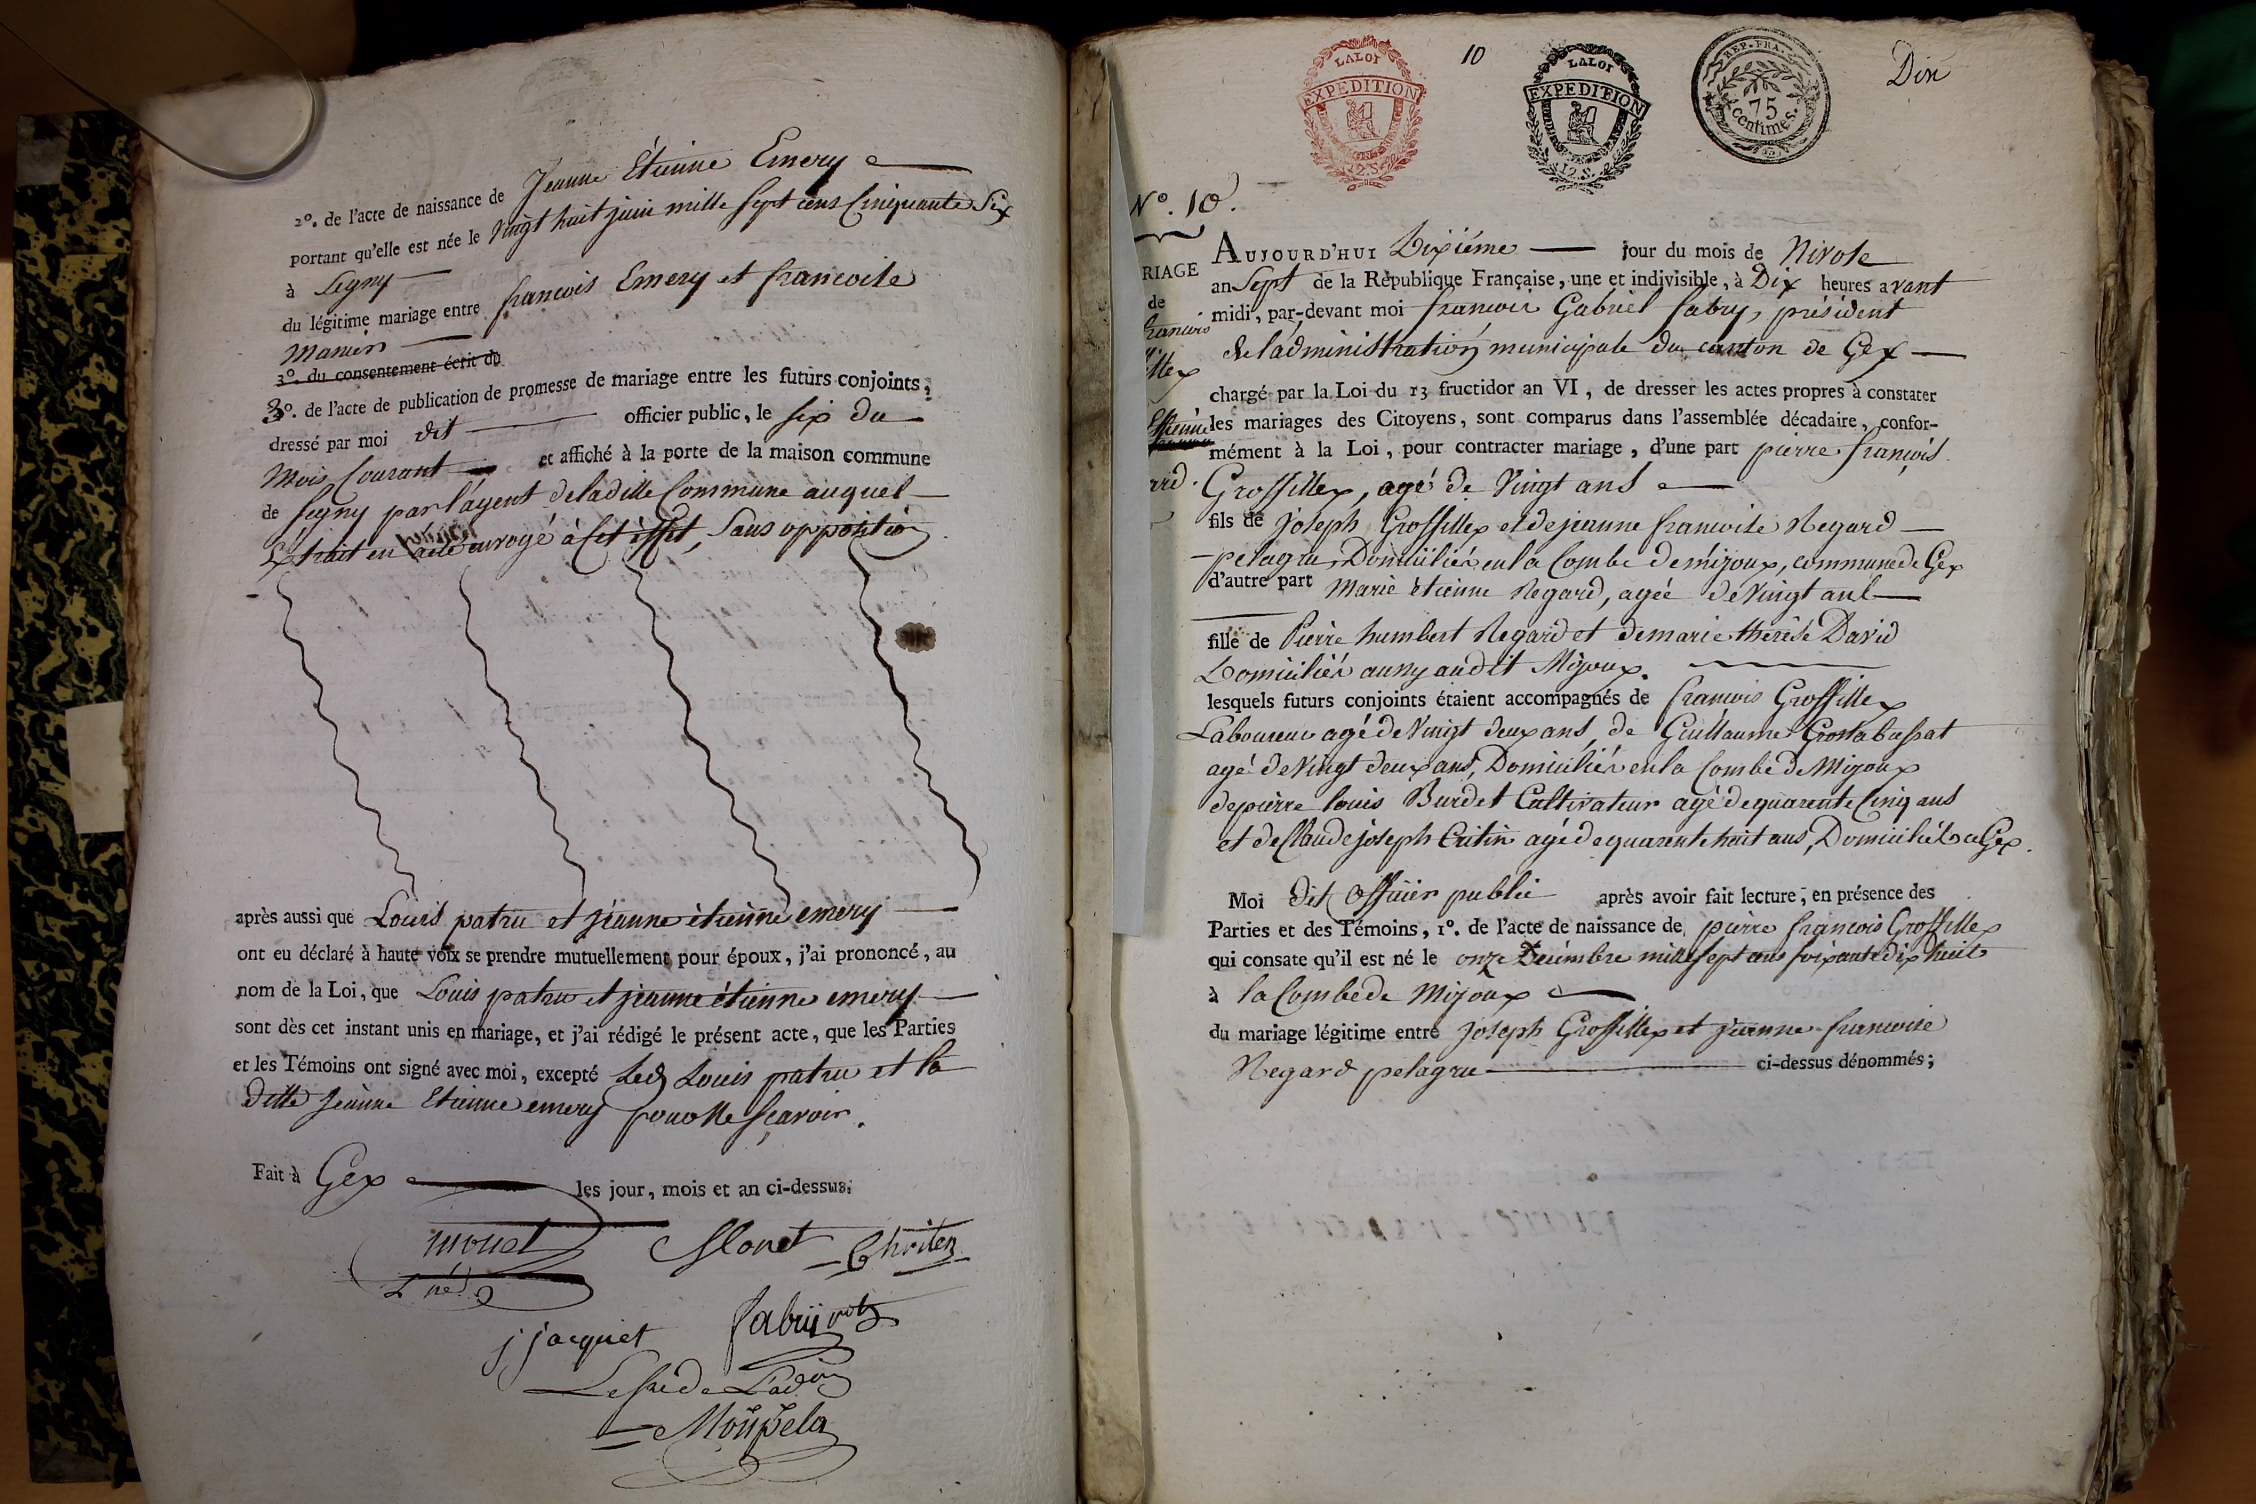 2°. de l'acte de naissance de Jeanne Etienne Emery
portant qu'elle est née le Vingt huit juin mille sept cens Cinquante Six
à Segny
du légitime mariage entre francois Emery et francoise
Manier
3°. du consentement écrit du
3°. de l'acte de publication de promesse de mariage entre les futurs conjoints,
dressé par moi dit officier public, le six du
Mois Courant et affiché à la porte de la maison commune
de Segny par l'agent de ladille Commune auquel
Extrait en a été envoyé à Cet effet, Sans opposition
après aussi que Louis patru et jeanne étienne emery
ont eu déclaré à haute voix se prendre mutuellement pour époux, j'ai prononcé, au
nom de la Loi, que Louis patru et jeanne étienne emery
sont dès cet instant unis en mariage, et j'ai rédigé le présent acte, que les Parties
et les Témoins ont signé avec moi, excepté Led Louis patru et la
ditte Jeanne Etienne emery pour ne sçavoir.
Fait à Gex les jour, mois et an ci-dessus.
j jacquet fabry
LALOI
EXPEDITION
12.S.
10
LALOI
EXPEDITION
12.S.
REP. FRA.
75
centimes.
Dix
N°. 10.
RIAGE
de
francois
Etienne
ard.
AUJOURD'HUI Dixiéme jour du mois de Nivose
an Sept de la République Française, une et indivisible, à Dix heures avant
midi, par-devant moi francois Gabriel fabry, président
de l'administration municipale du canton de Gex
chargé par la Loi du 13 fructidor an VI, de dresser les actes propres à constater
les mariages des Citoyens, sont comparus dans l'assemblée décadaire, confor-
mément à la Loi, pour contracter mariage, d'une part pierre françois
Grossillex, agé de Vingt ans
fils de Joseph Grossillex et de jeanne francoise Regard
pelagru, Domiciliés en la Combe de mijoux, commune de Gex
d'autre part Marie étienne Regard, agée de Vingt ans
fille de Pierre humbert Regard et de marie thérèse David
Domiciliés aussy audit Mijoux.
lesquels futurs conjoints étaient accompagnés de francois Grossillex
Laboureur agé de Vingt deux ans, de Guillaume Grostabussat
agé de Vingt deux ans, Domiciliés en la Combe de Mijoux
de pierre louis Burdet Cultivateur agé de quarente Cinq ans
et de Claude joseph Critin agé de quarente huit ans, Domiciliés a Gex.
Moi dit Officier public après avoir fait lecture, en présence des
Parties et des Témoins, 1°. de l'acte de naissance de pierre francois Grossillex
qui consate qu'il est né le onze Decembre mille sept cens soixante dix huit
à la Combe de Mijoux
du mariage légitime entre Joseph Grossillex et jeanne francoise
Regard pelagru ci-dessus dénommés;